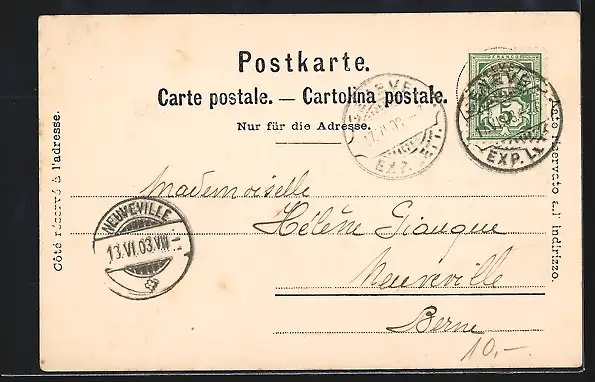 Postkarte.
Carte postale. — Cartolina postale.
Nur für die Adresse.
Côté réservé à l'adresse.
Lato riservato all' indirizzo.
GENEVE
EXP. LETT.
GENEVE
5
EXP. LETT.
NEUVEVILLE
13.VI.03.VIII
Mademoiselle
Hélène Giauque
Neuveville
Berne
10,-